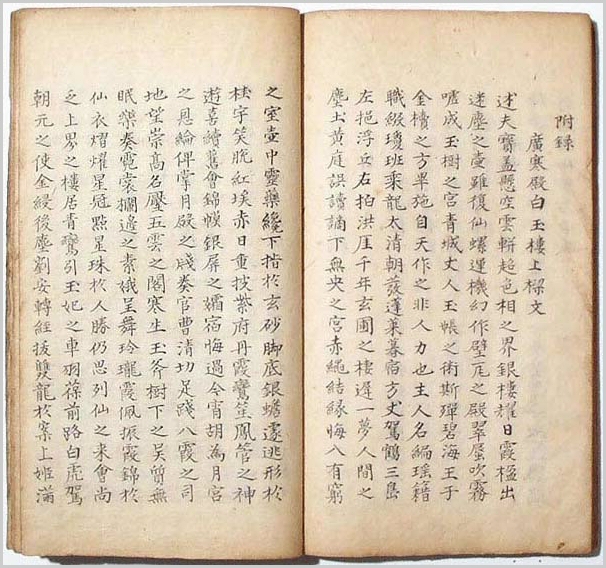 附録
廣寒殿白玉樓上樑文
述夫寶盖懸空雲輧超色相之界銀樓耀日霞楹出
迷塵之壷雖復仙螺運機幻作壁瓦之殿翠蜃吹霧
噓成玉樹之宮青城丈人玉帳之術斯殫碧海王子
金櫝之方畢施自天作之非人力也主人名編瑶籍
職綴瓊班乘龍太清朝發蓬萊暮宿方丈駕鶴三島
左挹浮丘右拍洪厓千年玄圃之棲遲一夢人間之
塵土黄庭誤讀謫下無央之宮赤繩結縁悔入有窮
之室壷中靈藥纔下指於玄砂脚底銀蟾遽逃形於
桂宇笑脫紅埃赤日重披紫府丹霞鸞笙鳳管之神
遊喜續舊會錦幙銀屏之孀宿悔過今宵胡為月宮
之恩綸俾掌月殿之牋奏官曹清切足踐八霞之司
地望崇高名壓五雲之閣寒生玉斧樹下之吴質無
眠樂奏霓裳欄邊之素娥呈舞玲瓏霞佩振霞錦於
仙衣熠燿星冠點星珠於人勝仍思列仙之来會尚
乏上界之樓居青鸞引玉妃之車羽葆前路白虎駕
朝元之使金綬後塵劉安轉經拔雙龍於案上姬滿